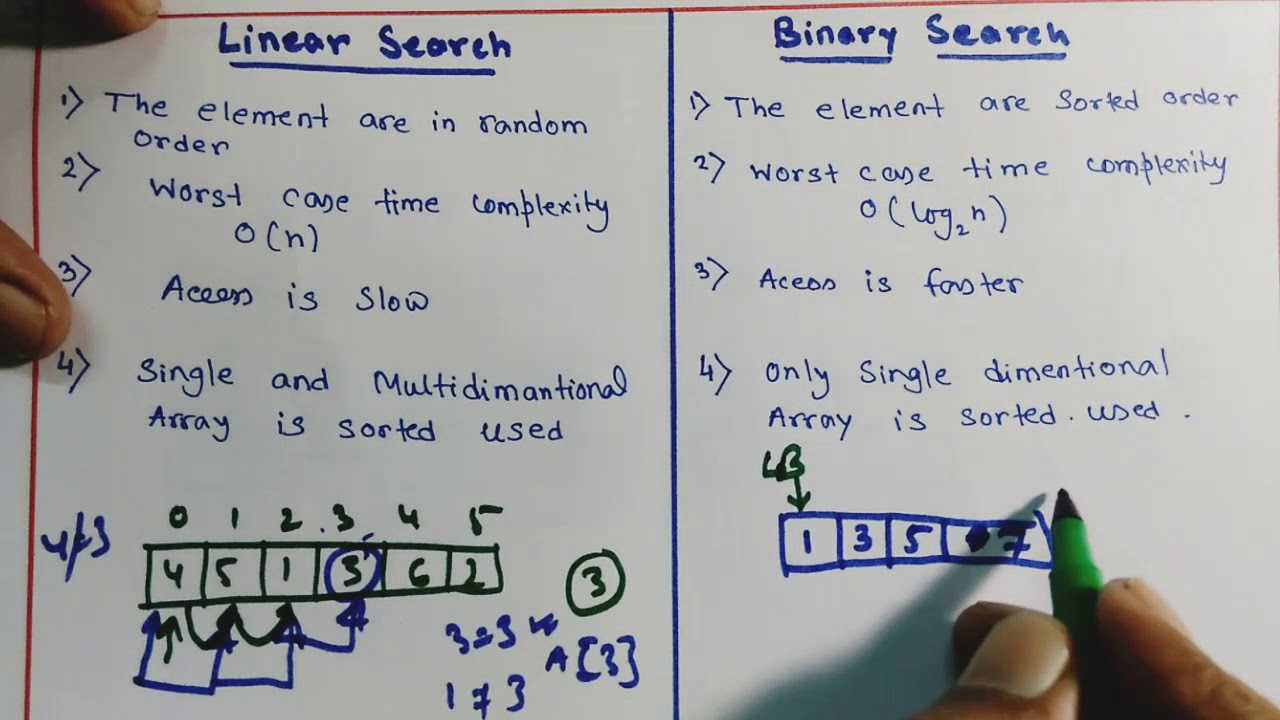 Linear Search
1) The element are in random
order
2) Worst case time complexity
O(n)
3) Access is slow
4) Single and Multidimantional
Array is sorted used
0 1 2 3 4 5
4 5 1 3 6 2
3
3=3
A[3]
1 ≠ 3
4≠3
Binary Search
1) The element are sorted order
2) Worst case time complexity
O(log₂n)
3) Acess is faster
4) Only Single dimentional
Array is sorted. used.
LB
1 3 5 7